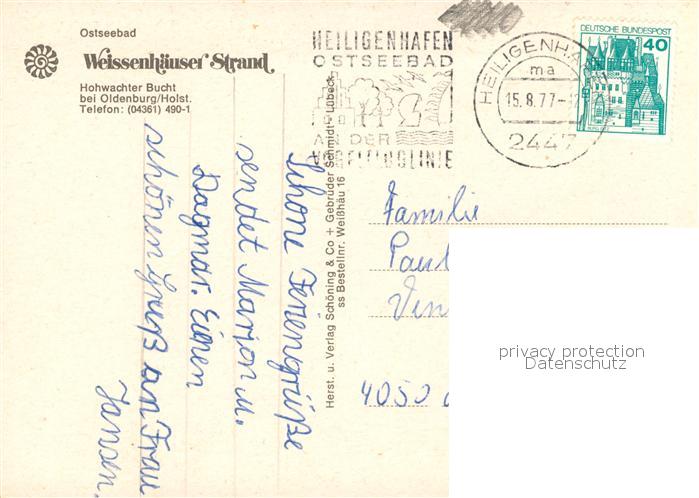 Ostseebad
Weissenhäuser Strand
Hohwachter Bucht
bei Oldenburg/Holst.
Telefon: (04361) 490-1
HEILIGENHAFEN
OSTSEEBAD
AN DER
VOGELFLUGLINIE
HEILIGENHA
ma
15.8.77-
2447
DEUTSCHE BUNDESPOST
40
Schöne Feriengrüße
sendet Marion u.
Dagmar. Einen
schönen Gruß an Frau
Jansen.
Herst. u. Verlag Schöning & Co + Gebrüder Schmidt · Lübeck
ss Bestellnr. Weißhäu 16
Familie
Paul
4050
privacy protection
Datenschutz